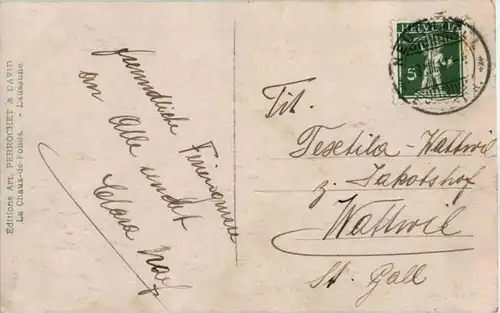 Editions Art. PERROCHET & DAVID
La Chaux-de-Fonds. - Lausanne.
freundliche
an Alle sendet
Clara Naef
HELVETIA
5
Tit.
Textilia-Wattwil
z. Jakobshof
Wattwil
St. Gall